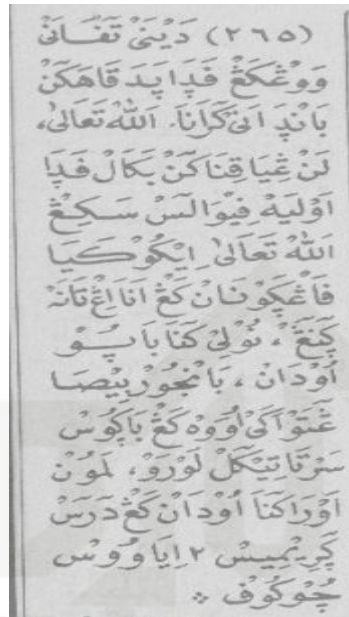 (٢٦٥) دَيْنَيْ تَفَانَيْ
وَوڠْكَڠْ فَدَا پَدَقَاهَكَنْ
بَانْدَا اَنَيْ كَرَانَا. اَللّٰهُ تَعَالٰى،
لَنْ ڠِيَاقِنَاكَنْ بَكَالْ فَدَا
اَوْلَيْهْ فِيْوَالَسْ سَكِڠْ
اَللّٰهُ تَعَالٰى اِيْكُوْ كَيَا
فَاڠْݢَوْنَانْ كَڠْ اَنَا اِڠْ تَانَهْ
نُوْلِيْ كَنَا بَاپُوْ
اُوْدَانْ، بَانْجُوْرْ بِيْصَا
ڠَتَوْأَكَيْ اُوْوَهْ كَڠْ بَاݢُوْسْ
سَرْتَا تِيْكَلْ لَوْرَوْ، لَمُوْنْ
اَوْرَا كَنَا اُوْدَانْ كَڠْ دَرَسْ
ݢَرِيْمِيْسْ ٢ اِيَا وُوْسْ
چُوْكُوْفْ ❖